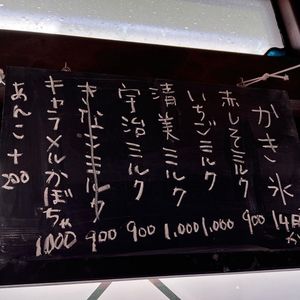 かき氷
赤しそミルク 900
いちごミルク 1,000
清美ミルク 1,000
宇治ミルク 900
きなこミルク 900
キャラメルかぼちゃ 1,000
あんこ+200